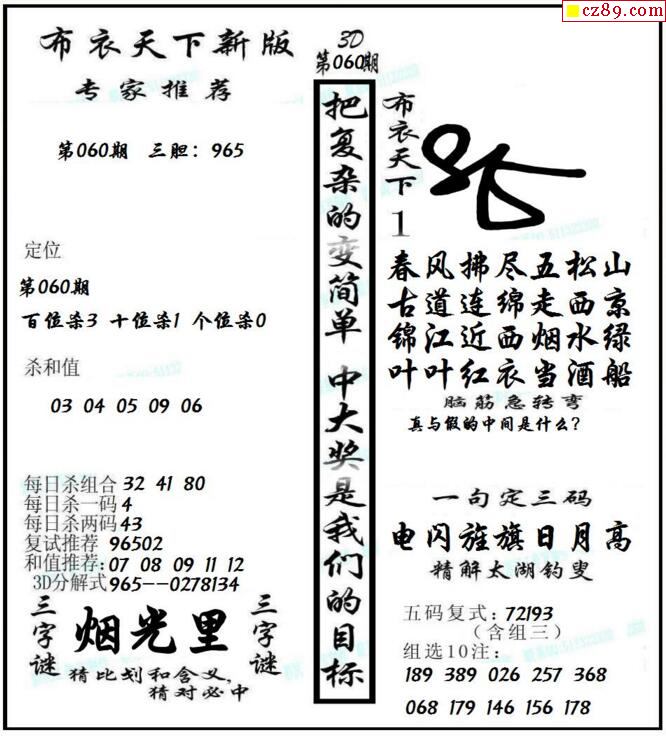 cz89.com
布衣天下新版
专家推荐
第060期 三胆：965
定位
第060期
百位杀3 十位杀1 个位杀0
杀和值
03 04 05 09 06
每日杀组合 32 41 80
每日杀一码 4
每日杀两码 43
复试推荐 96502
和值推荐：07 08 09 11 12
3D分解式 965--0278134
三字谜
烟光里
三字谜
猜比划和含义，
猜对必中
3D
第060期
把复杂的变简单 中大奖是我们的目标
布衣天下1
春风拂尽五松山
古道连绵走西京
锦江近西烟水绿
叶叶红衣当酒船
脑筋急转弯
真与假的中间是什么？
一句定三码
电闪旌旗日月高
精解太湖钓叟
五码复式：72193
（含组三）
组选10注：
189 389 026 257 368
068 179 146 156 178